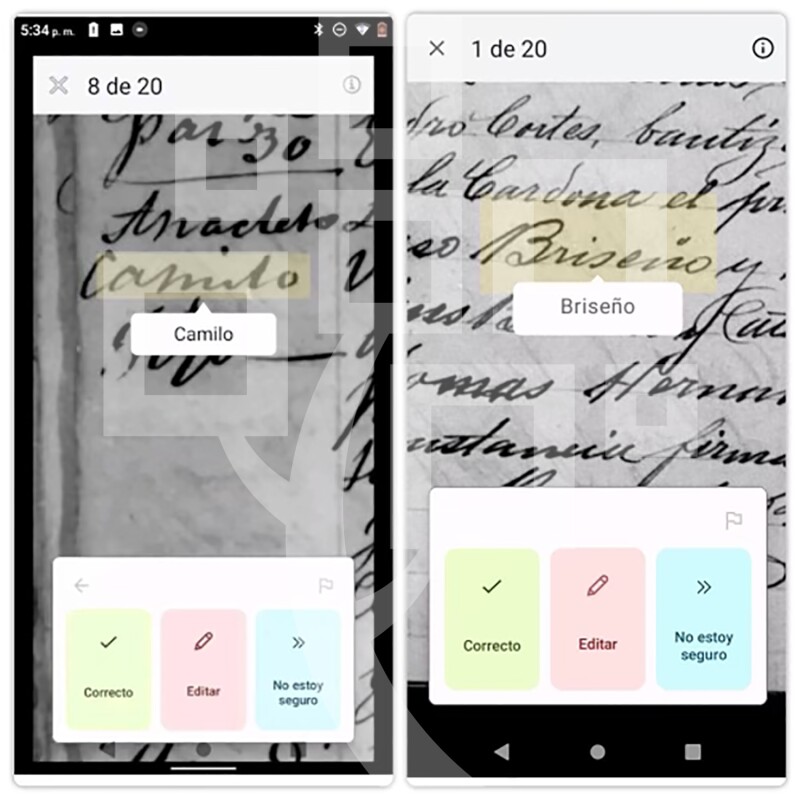 5:34 p. m.
8 de 20
Par 30
Anacleto
Camilo
Camilo
Correcto
Editar
No estoy
seguro
1 de 20
dro Cortes, bautiz
la Cardona el pr
so Briseño y
Briseño
omas Hernan
nstancia firma
Correcto
Editar
No estoy
seguro